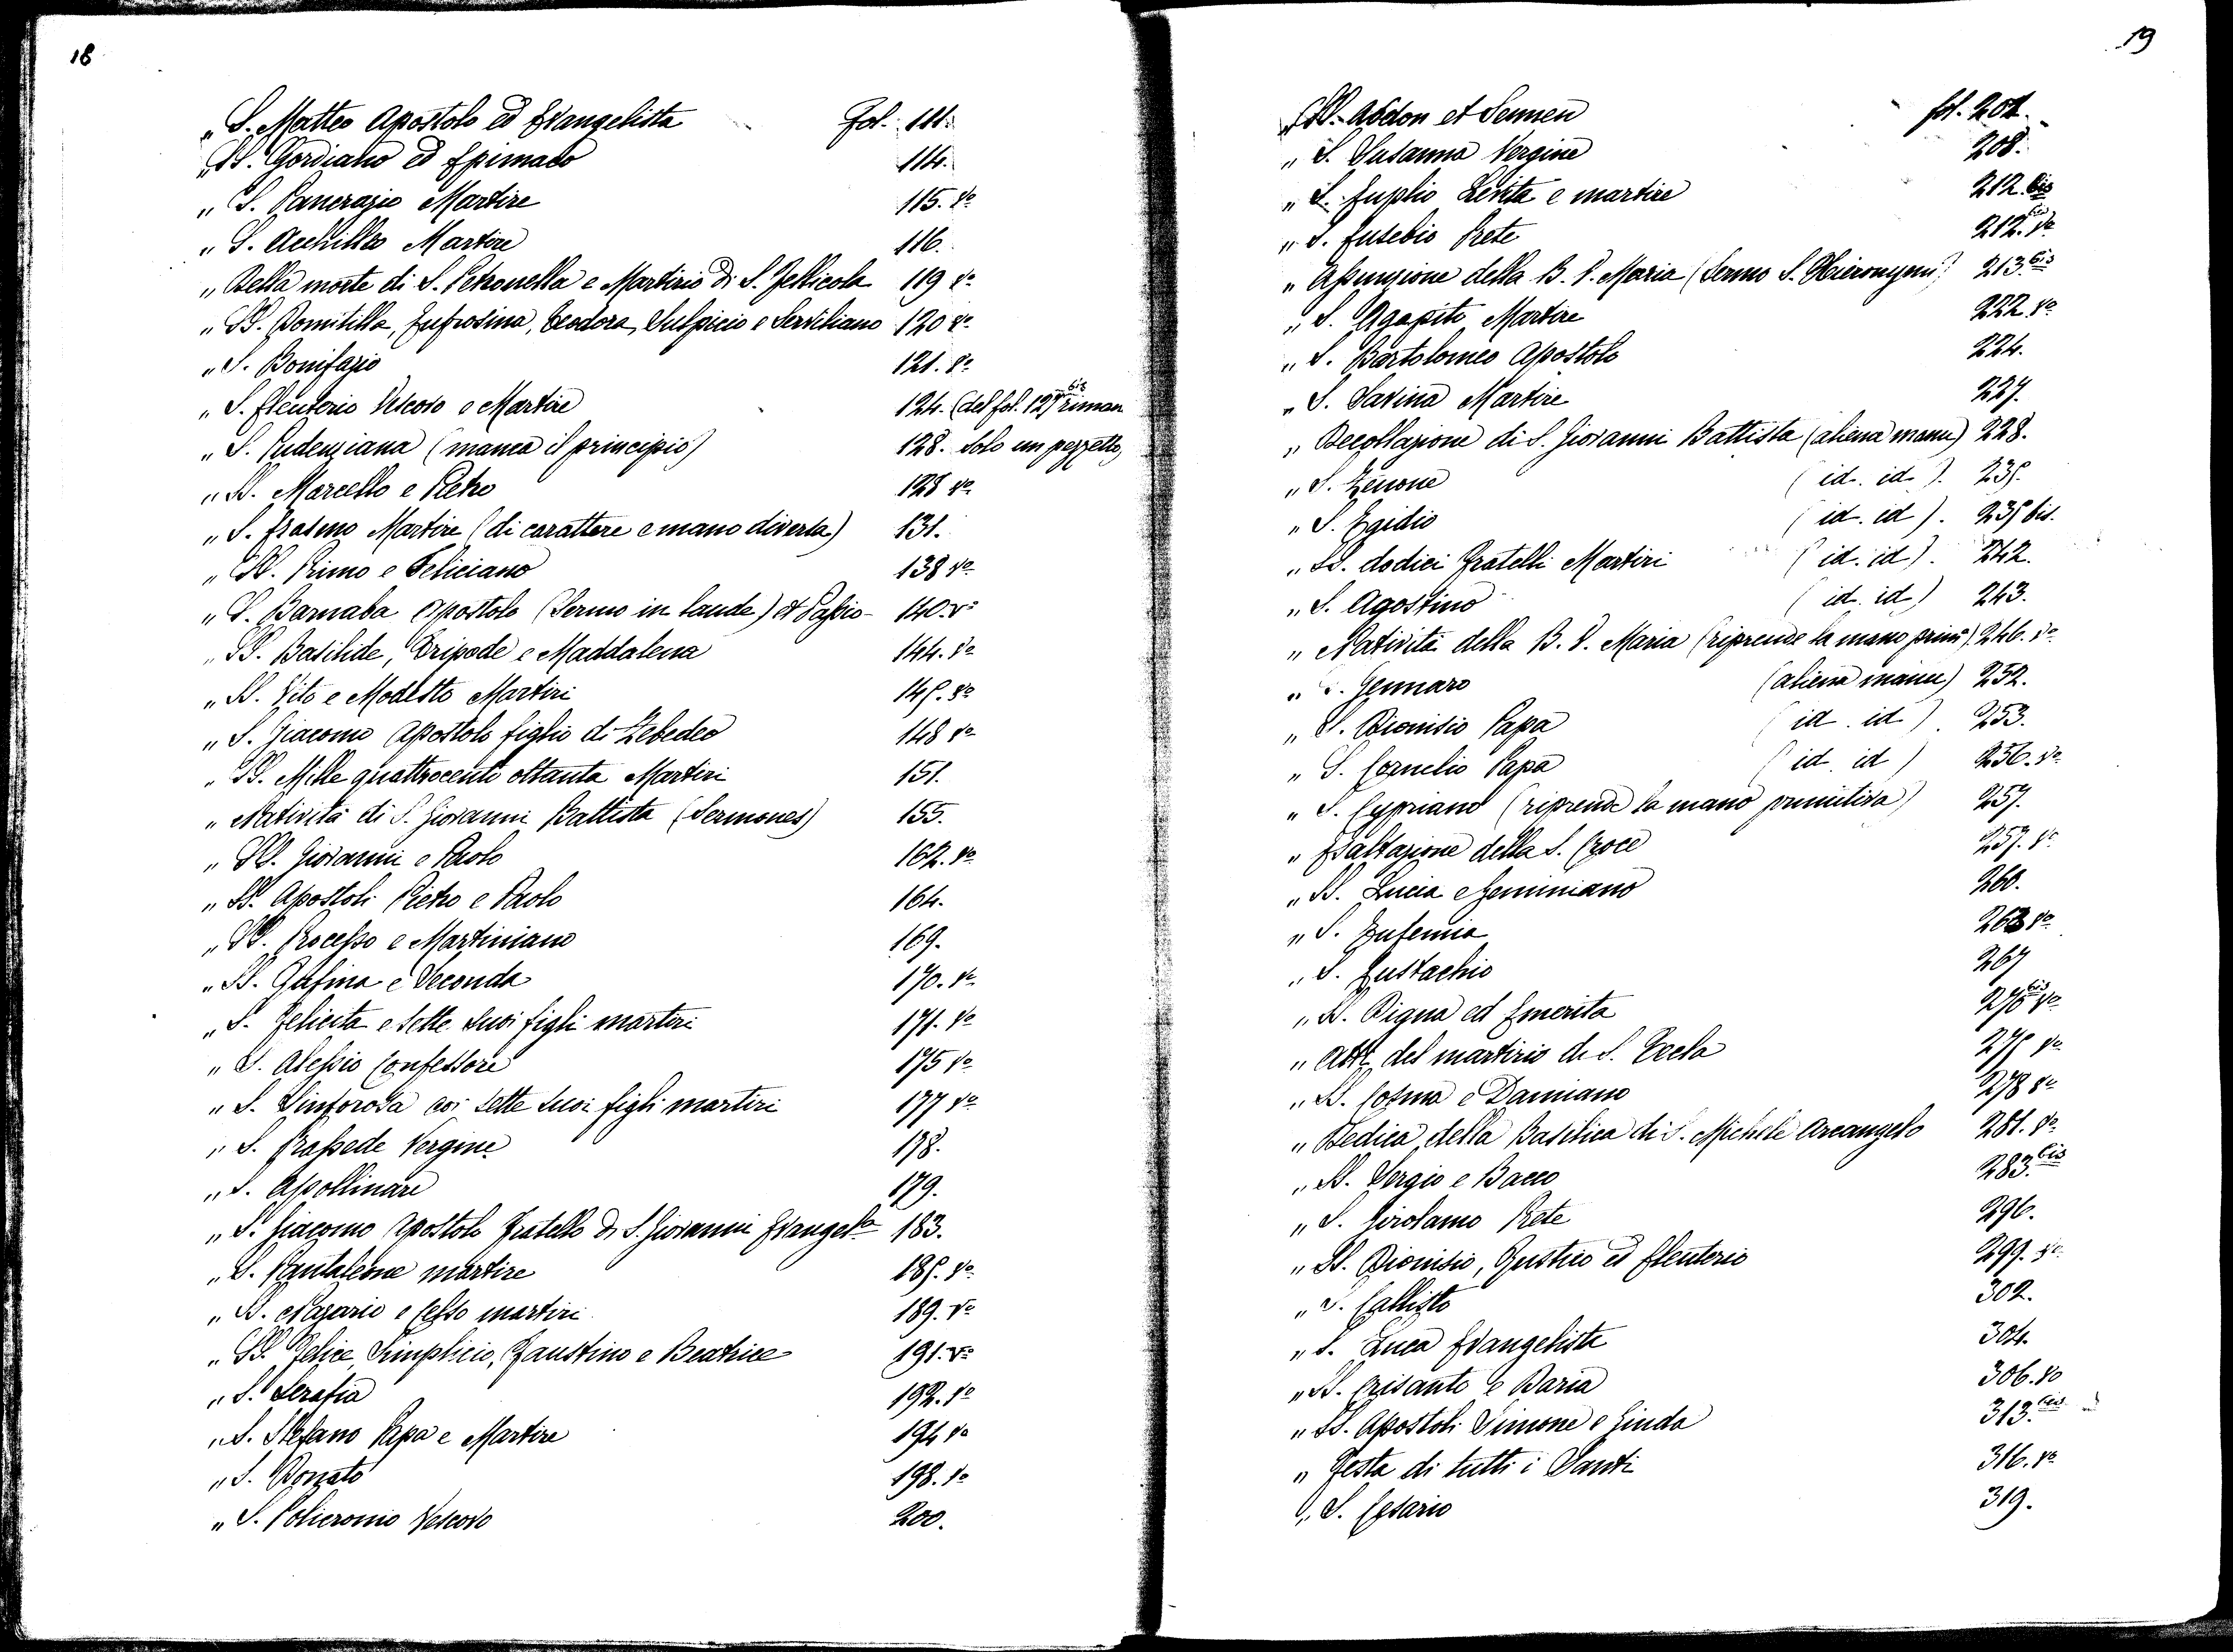 18
„ S. Matteo Apostolo ed Evangelista Fol. 111.
„ SS. Gordiano ed Epimaco 114.
„ S. Pancrazio Martire 115. vo
„ S. Achilleo Martire 116.
„ Della morte di S. Petronella e Martirio di S. Fellicola 119 vo
„ SS. Domitilla, Eufrosina, Teodora, Sulpicio e Serviliano 120 vo
„ S. Bonifazio 121. vo
„ S. Eleuterio Vescovo e Martire 124. (del fol. 127 bis riman
„ S. Pudenziana (manca il principio) 128. solo un pezzetto)
„ SS. Marcello e Pietro 128 vo
„ S. Erasmo Martire (di carattere e mano diversa) 131.
„ SS. Primo e Feliciano 138 vo
„ S. Barnaba Apostolo (Sermo in laude) et Passio 140. vo
„ SS. Basilide, Tripode e Maddalena 144. vo
„ SS. Vito e Modesto Martiri 145. vo
„ S. Giacomo Apostolo figlio di Zebedeo 148 vo
„ SS. Mille quattrocento ottanta Martiri 151.
„ Natività di S. Giovanni Battista (Sermones) 155.
„ SS. Giovanni e Paolo 162. vo
„ SS. Apostoli Pietro e Paolo 164.
„ SS. Processo e Martiniano 169.
„ SS. Rufina e Seconda 170. vo
„ S. Felicita e sette suoi figli martiri 171. vo
„ S. Alessio Confessore 175 vo
„ S. Sinforosa coi sette suoi figli martiri 177 vo
„ S. Prassede Vergine 178.
„ S. Apollinare 179.
„ S. Giacomo Apostolo Fratello di S. Giovanni Evangelta 183.
„ S. Pantaleone martire 185. vo
„ SS. Nazario e Celso martiri 189. vo
„ SS. Felice, Simplicio, Faustino e Beatrice 191. vo
„ S. Serafia 192. vo
„ S. Stefano Papa e Martire 194 vo
„ S. Donato 198. vo
„ S. Policronio Vescovo 200.
19
„ SS. Abdon et Sennen fol. 201.
„ S. Susanna Vergine 208.
„ S. Euplio Levita e martire 212. bis
„ S. Eusebio Prete 212. bis vo
„ Assunzione della B. V. Maria (Sermo S. Hieronymi) 213. bis
„ S. Agapito Martire 222. vo
„ S. Bartolomeo Apostolo 224.
„ S. Savina Martire 227.
„ Decollazione di S. Giovanni Battista (aliena manu) 228.
„ S. Zenone (id. id.). 235.
„ S. Egidio (id. id). 235 bis.
„ SS. dodici Fratelli Martiri (id. id). 242.
„ S. Agostino (id. id) 243.
„ Natività della B. V. Maria (riprende la mano prima) 246. vo
„ S. Gennaro (aliena manu) 252.
„ S. Dionisio Papa (id. id). 253.
„ S. Cornelio Papa (id. id) 256. vo
„ S. Cypriano (riprende la mano primitiva) 257.
„ Esaltazione della S. Croce 257. vo
„ SS. Lucia e Geminiano 260.
„ S. Eufemia 263 vo
„ S. Eustachio 267
„ SS. Digna ed Emerita 270 bis vo
„ Atti del martirio di S. Tecla 275 vo
„ SS. Cosma e Damiano 278 vo
„ Dedica della Basilica di S. Michele Arcangelo 281. vo
„ SS. Sergio e Bacco 283. bis
„ S. Girolamo Prete 296.
„ SS. Dionisio, Rustico ed Eleuterio 299. vo
„ S. Callisto 302.
„ S. Luca Evangelista 304.
„ SS. Crisanto e Daria 306. vo
„ SS. Apostoli Simone e Giuda 313. bis
„ Festa di tutti i Santi 316. vo
„ S. Cesario 319.